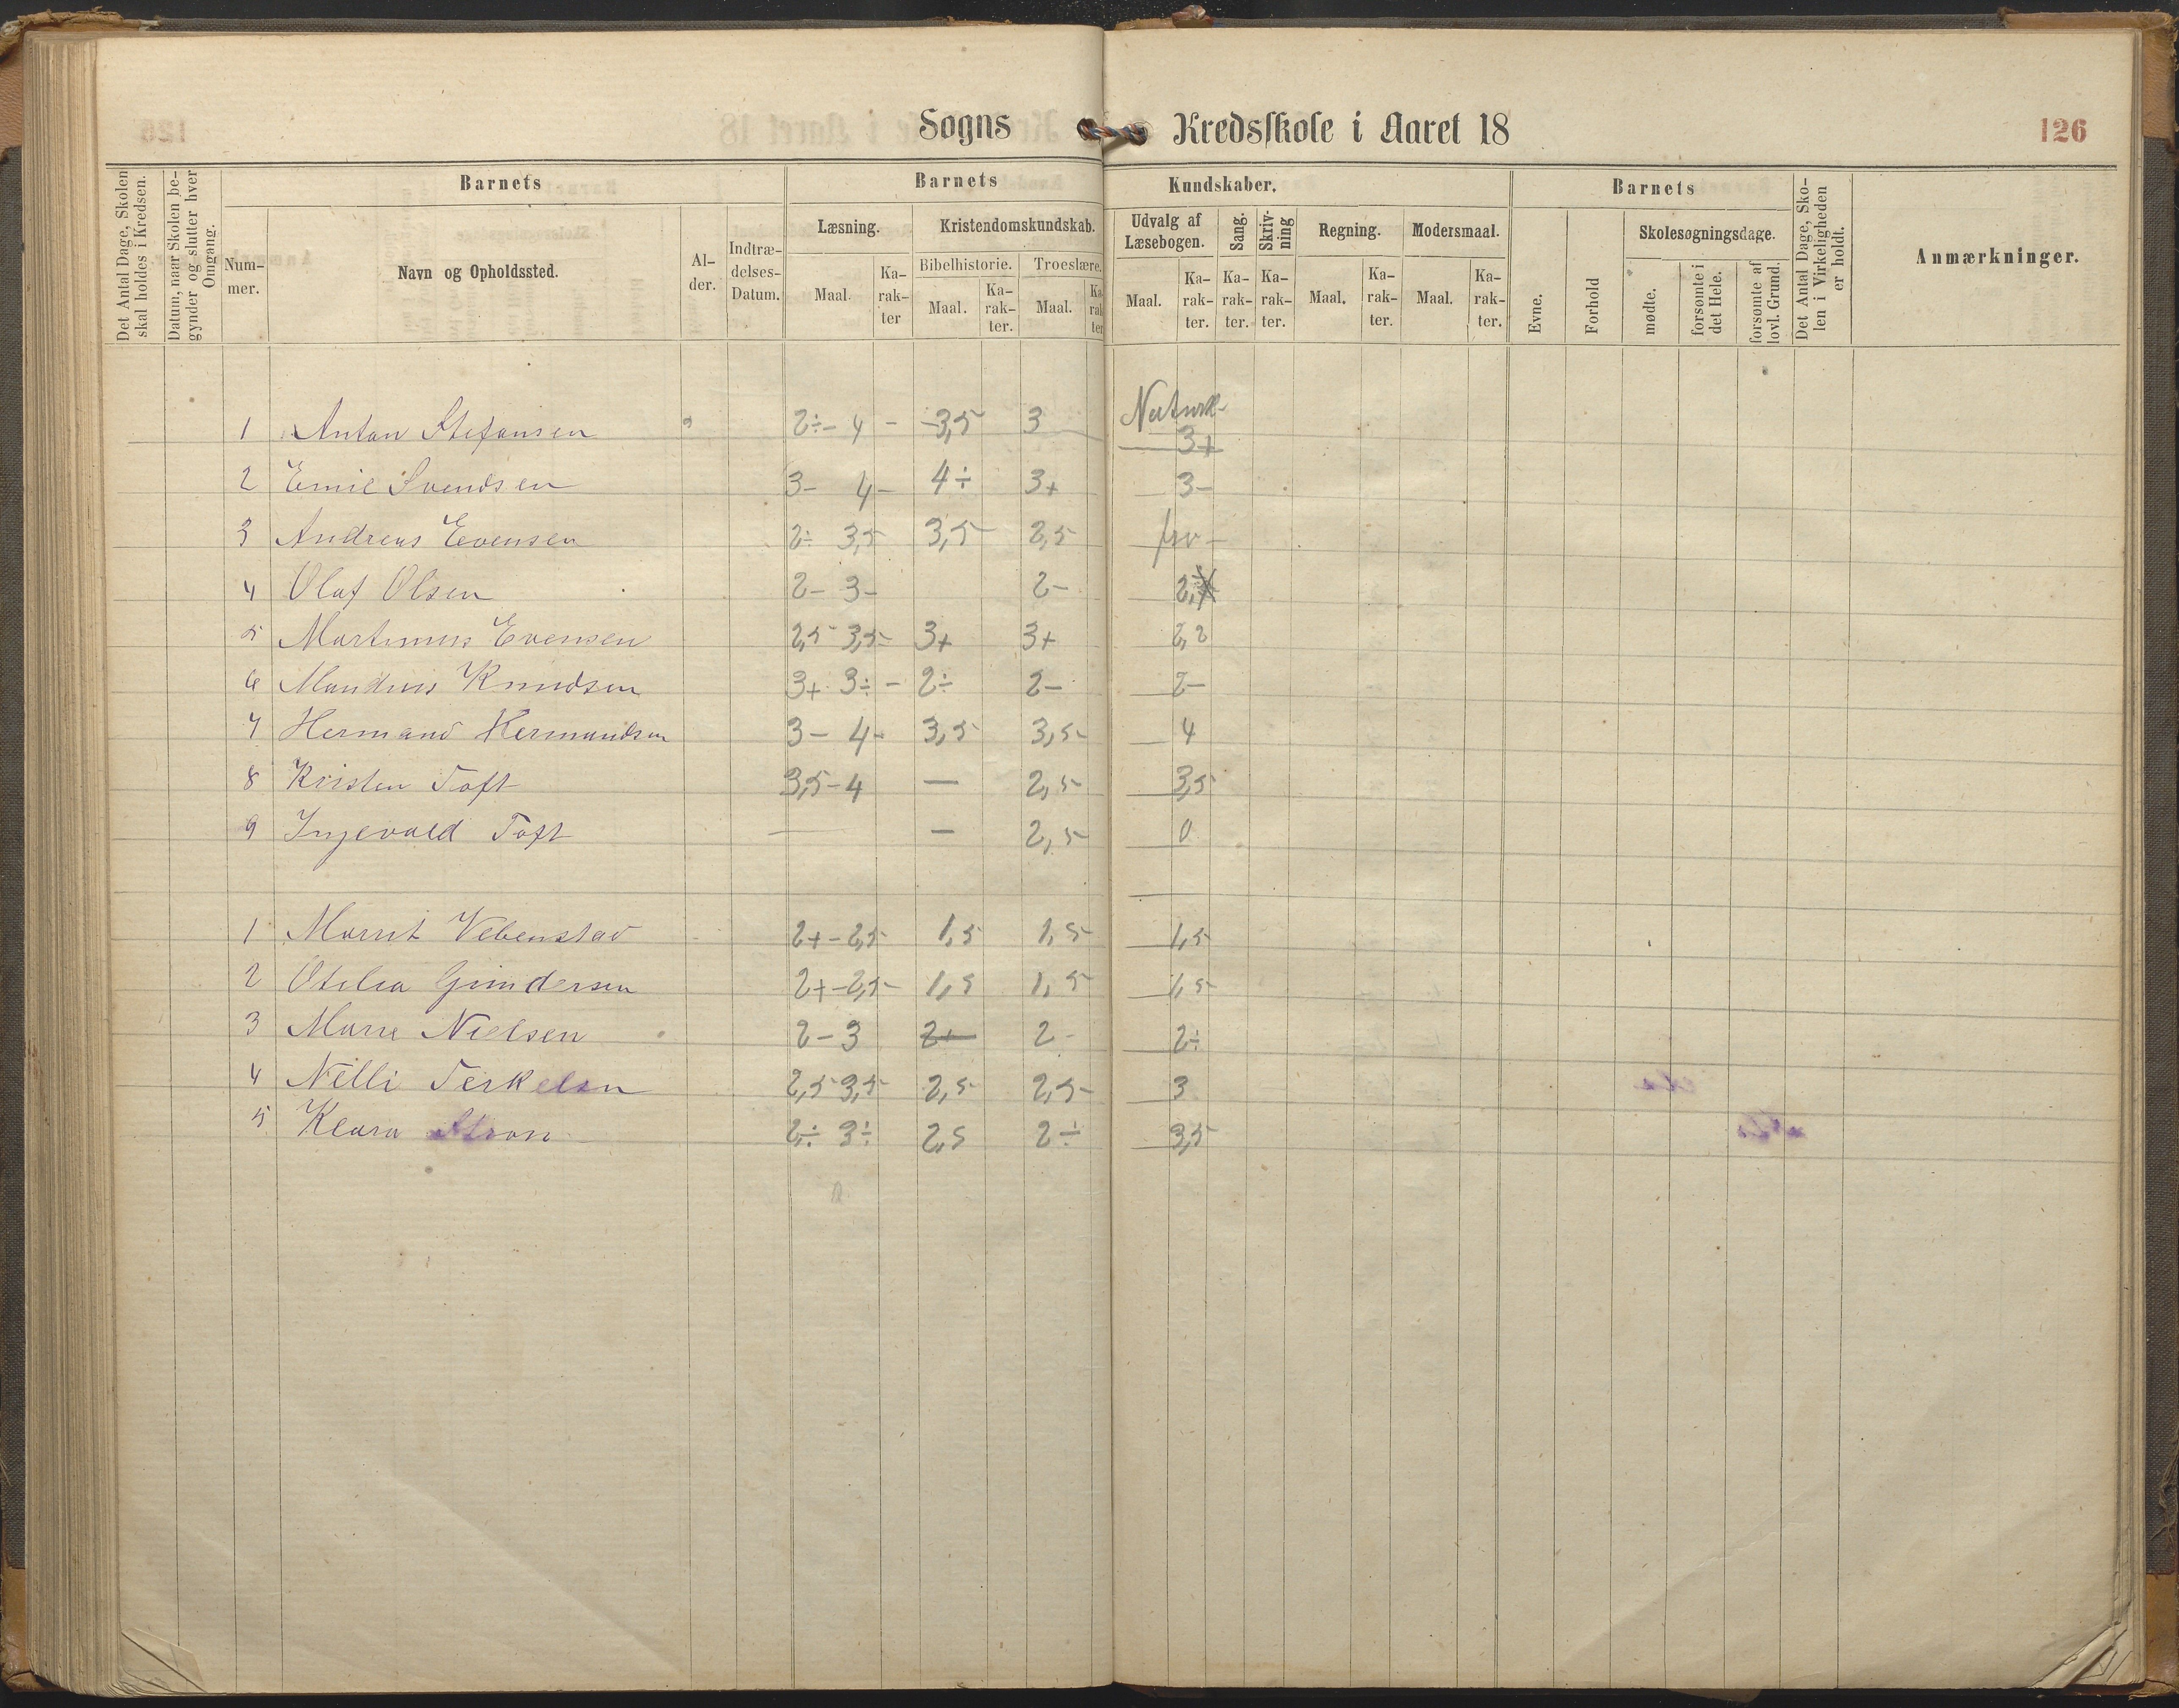 Sogns Kredsskole i Aaret 18 126
Det Antal Dage, Skolen skal holdes i Kredsen.
Datum, naar Skolen begynder og slutter hver Omgang.
Barnets
Nummer.
Navn og Opholdssted.
Alder.
Indtrædelses-Datum.
Barnets Kundskaber.
Læsning. Kristendomskundskab.
Maal. Karakter
Bibelhistorie. Troeslære.
Maal. Karakter. Maal. Karakter
Udvalg af Læsebogen. Sang. Skrivning Regning. Modersmaal.
Maal. Karakter. Karakter. Karakter. Maal. Karakter. Maal. Karakter.
Barnets
Evne. Forhold Skolesøgningsdage.
mødte. forsømte i det Hele. forsømte af lovl. Grund.
Det Antal Dage, Skolen i Virkeligheden er holdt.
Anmærkninger.
1 Anton Stefansen 2÷ - 4 - 3,5 3 3+
2 Emil Svendsen 3- 4- 4÷ 3+ 3-
3 Andreas Evensen 2÷ 3,5 3,5 2,5
4 Olaf Olsen 2- 3- 2-
5 Martinius Evensen 2,5 3,5- 3+ 3+ 2,2
6 Mandius Knudsen 3+ 3÷ - 2÷ 2- 2-
7 Hermand Hermandsen 3- 4- 3,5 3,5- 4
8 Kristen Toft 3,5-4 — 2,5 3,5
9 Ingevald Toft — — 2,5 0
1 Marit Vebenstad 2+ - 2,5 1,5 1,5 1,5
2 Otilia Gundersen 2+ - 2,5- 1,5 1,5 1,5
3 Marie Nielsen 2-3 2+ 2- 2÷
4 Nilli Terkelsen 2,5 3,5 2,5 2,5- 3
5 Klara Strøm 2÷ 3÷ 2,5 2÷ 3,5